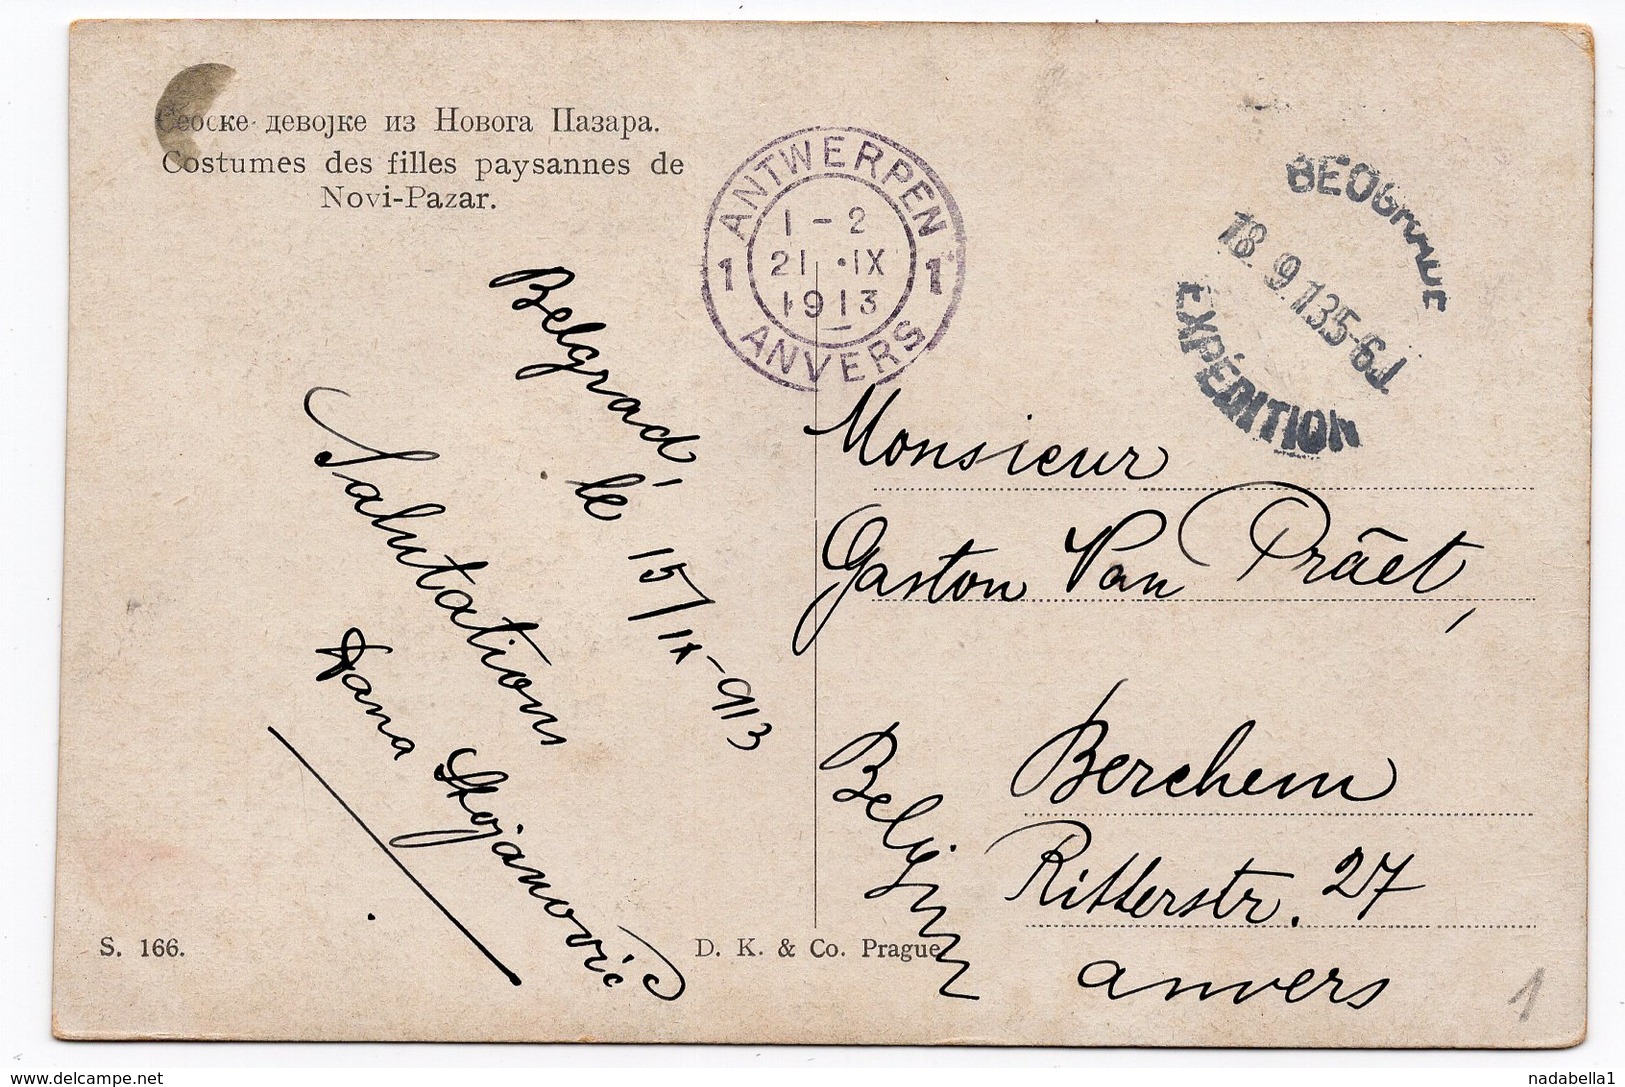 Сеоске девојке из Новога Пазара.
Costumes des filles paysannes de
Novi-Pazar.
ANTWERPEN
1 - 2
1 21 • IX 1
1913
ANVERS
BEOGRADE
18.9.13 5-6 J.
EXPÉDITION
Belgrad,
le 15/IX-913
Salutations
Dana Stojanović
Monsieur
Gaston Van Prāet,
Berchem
Ritterstr. 27
anvers
Belgium
S. 166.
D. K. & Co. Prague
1
www.delcampe.net
nadabella1